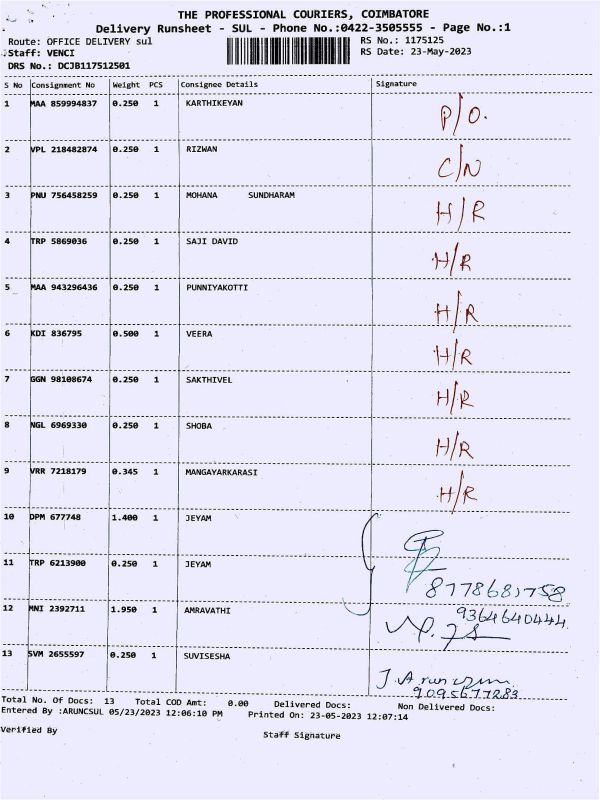 THE PROFESSIONAL COURIERS, COIMBATORE
Delivery Runsheet - SUL - Phone No.:0422-3505555 - Page No.:1
Route: OFFICE DELIVERY sul RS No.: 1175125
Staff: VENCI RS Date: 23-May-2023
DRS No.: DCJB117512501
S No Consignment No Weight PCS Consignee Details Signature
1 MAA 859994837 0.250 1 KARTHIKEYAN P/O.
2 VPL 218482874 0.250 1 RIZWAN C/N
3 PNU 756458259 0.250 1 MOHANA SUNDHARAM H/R
4 TRP 5869036 0.250 1 SAJI DAVID H/R
5 MAA 943296436 0.250 1 PUNNIYAKOTTI H/R
6 KDI 836795 0.500 1 VEERA H/R
7 GGN 98108674 0.250 1 SAKTHIVEL H/R
8 NGL 6969330 0.250 1 SHOBA H/R
9 VRR 7218179 0.345 1 MANGAYARKARASI H/R
10 DPM 677748 1.400 1 JEYAM
11 TRP 6213900 0.250 1 JEYAM 8778681758
12 MNI 2392711 1.950 1 AMRAVATHI 9364640444
13 SVM 2655597 0.250 1 SUVISESHA 9095677283
Total No. Of Docs: 13 Total COD Amt: 0.00 Delivered Docs: Non Delivered Docs:
Entered By :ARUNCSUL 05/23/2023 12:06:10 PM Printed On: 23-05-2023 12:07:14
Verified By Staff Signature